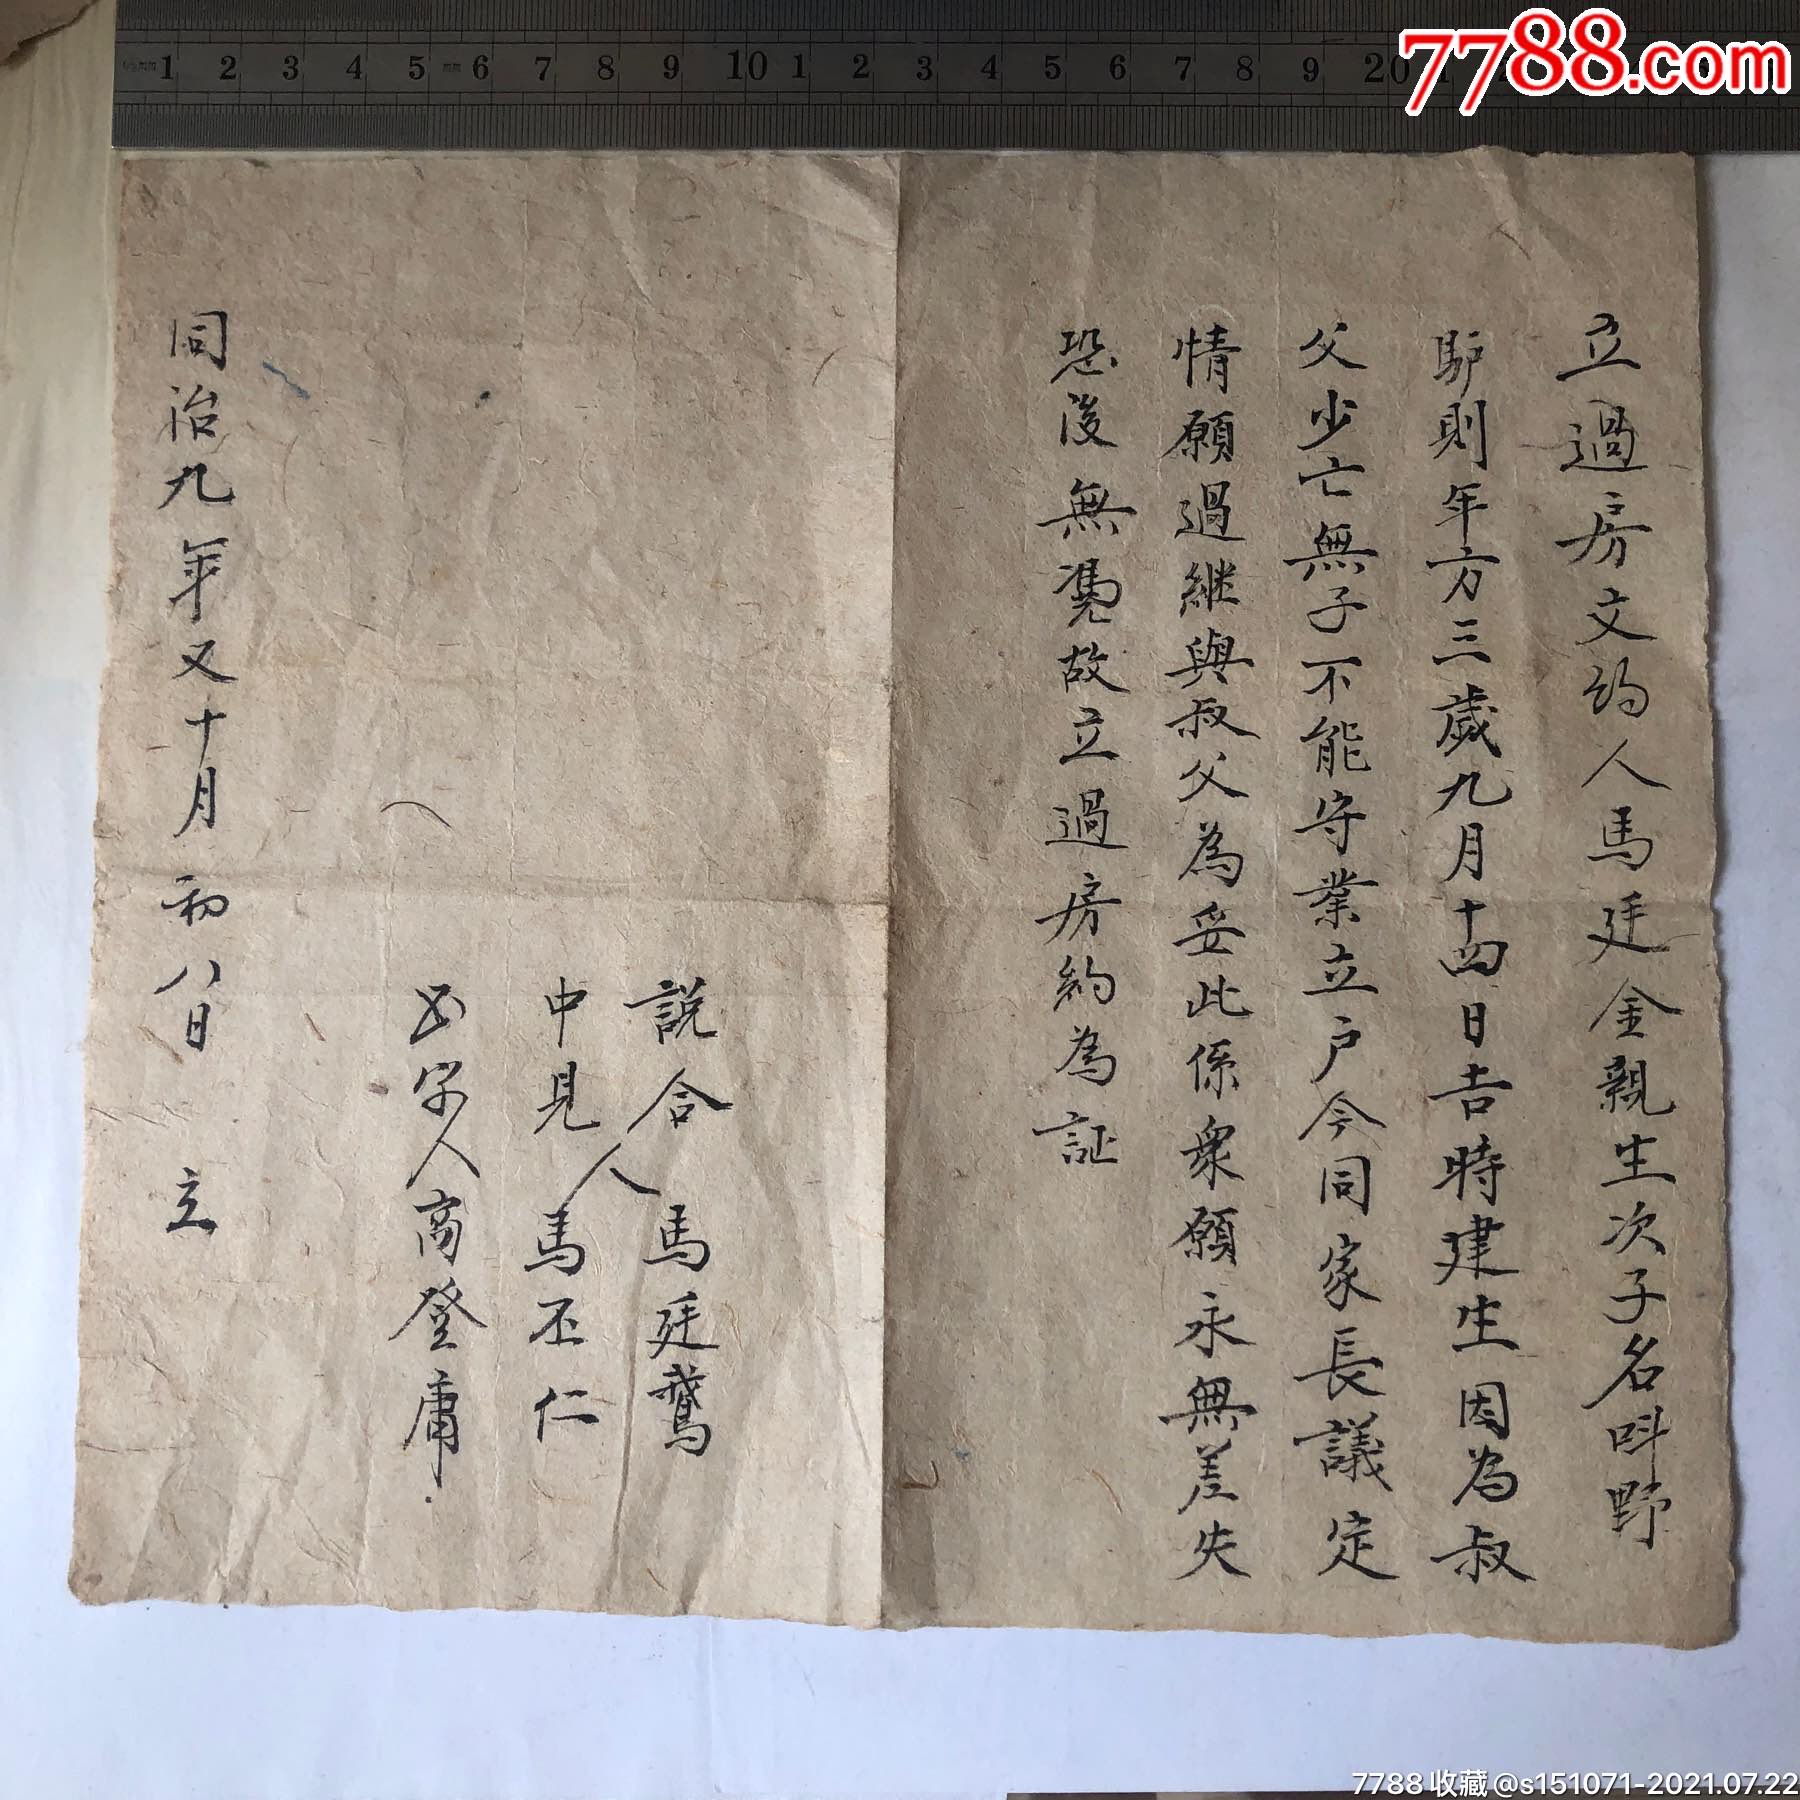 7788.com
1 2 3 4 5 6 7 8 9 10 1 2 3 4 5 6 7 8 9 20 1
立過房文約人馬廷金親生次子名呌野
馿則年方三歲九月十四日吉時建生因為叔
父少亡無子不能守業立户今同家長議定
情願過継與叔父為妥此係衆願永無差失
恐後無凴故立過房約為証
説合人馬廷鵞
中見人馬丕仁
字人商登庸
同治九年又十月初八日 立
7788收藏@s151071-2021.07.22